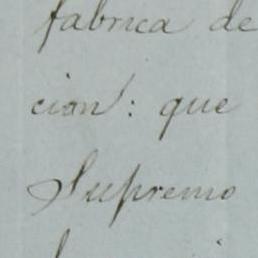 fabrica de
cion: que
Supremo